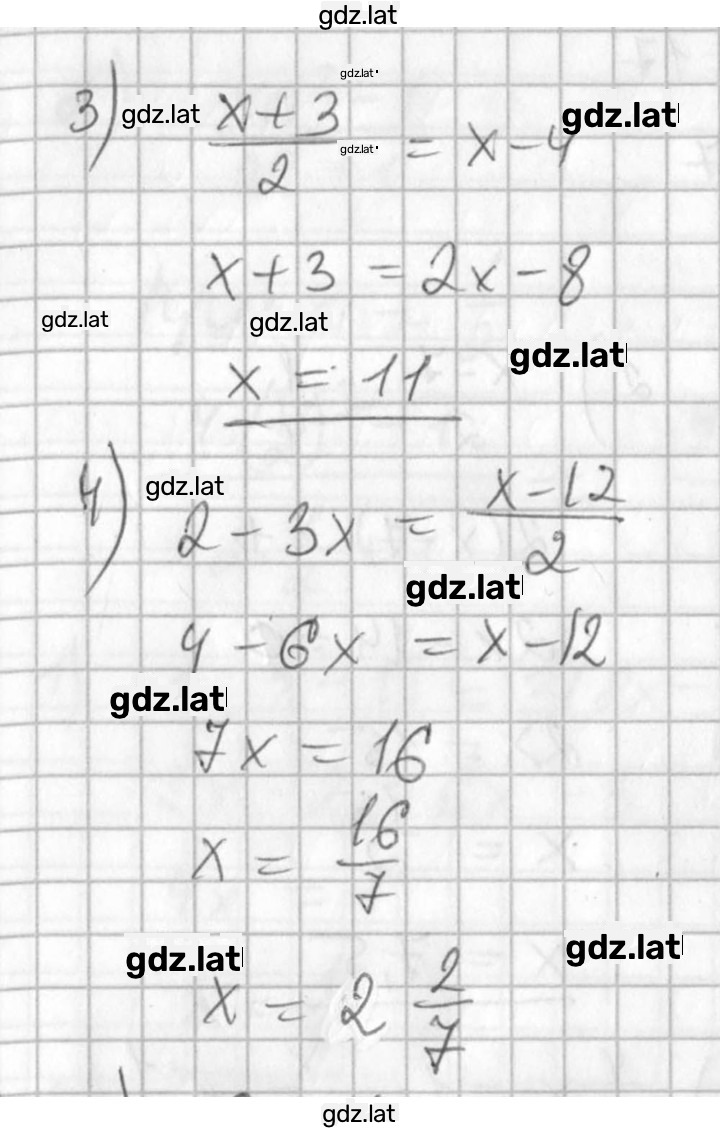 gdz.lat
gdz.lat
3) gdz.lat (x+3)/2 = x-4 gdz.lat
gdz.lat
x+3 = 2x-8
gdz.lat gdz.lat
gdz.lat
x = 11
4) gdz.lat 2-3x = (x-12)/2
gdz.lat
4-6x = x-12
gdz.lat
7x = 16
x = 16/7
gdz.lat gdz.lat
x = 2 2/7
gdz.lat